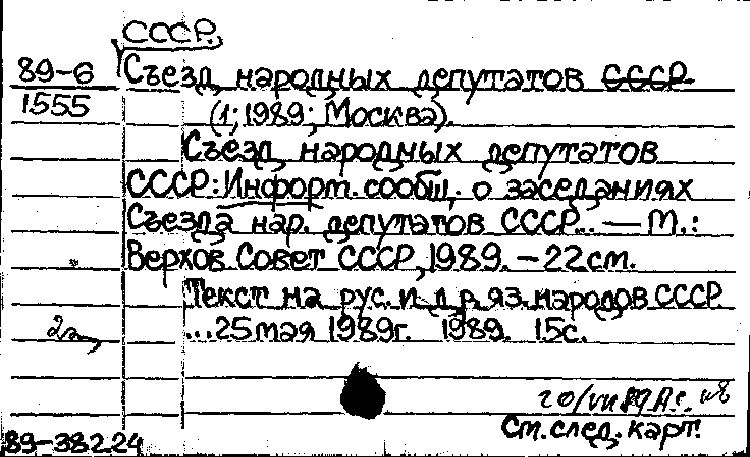 СССР.
89-6 Съезд народных депутатов СССР
1555 (1; 1989; Москва).
Съезд народных депутатов
СССР: Информ. сообщ. о заседаниях
Съезда нар. депутатов СССР... — М.:
Верхов. Совет СССР, 1989. – 22 см.
Текст на рус. и др. яз. народов СССР
...25 мая 1989г. 1989. 15с.
См. след. карт.
89-38224